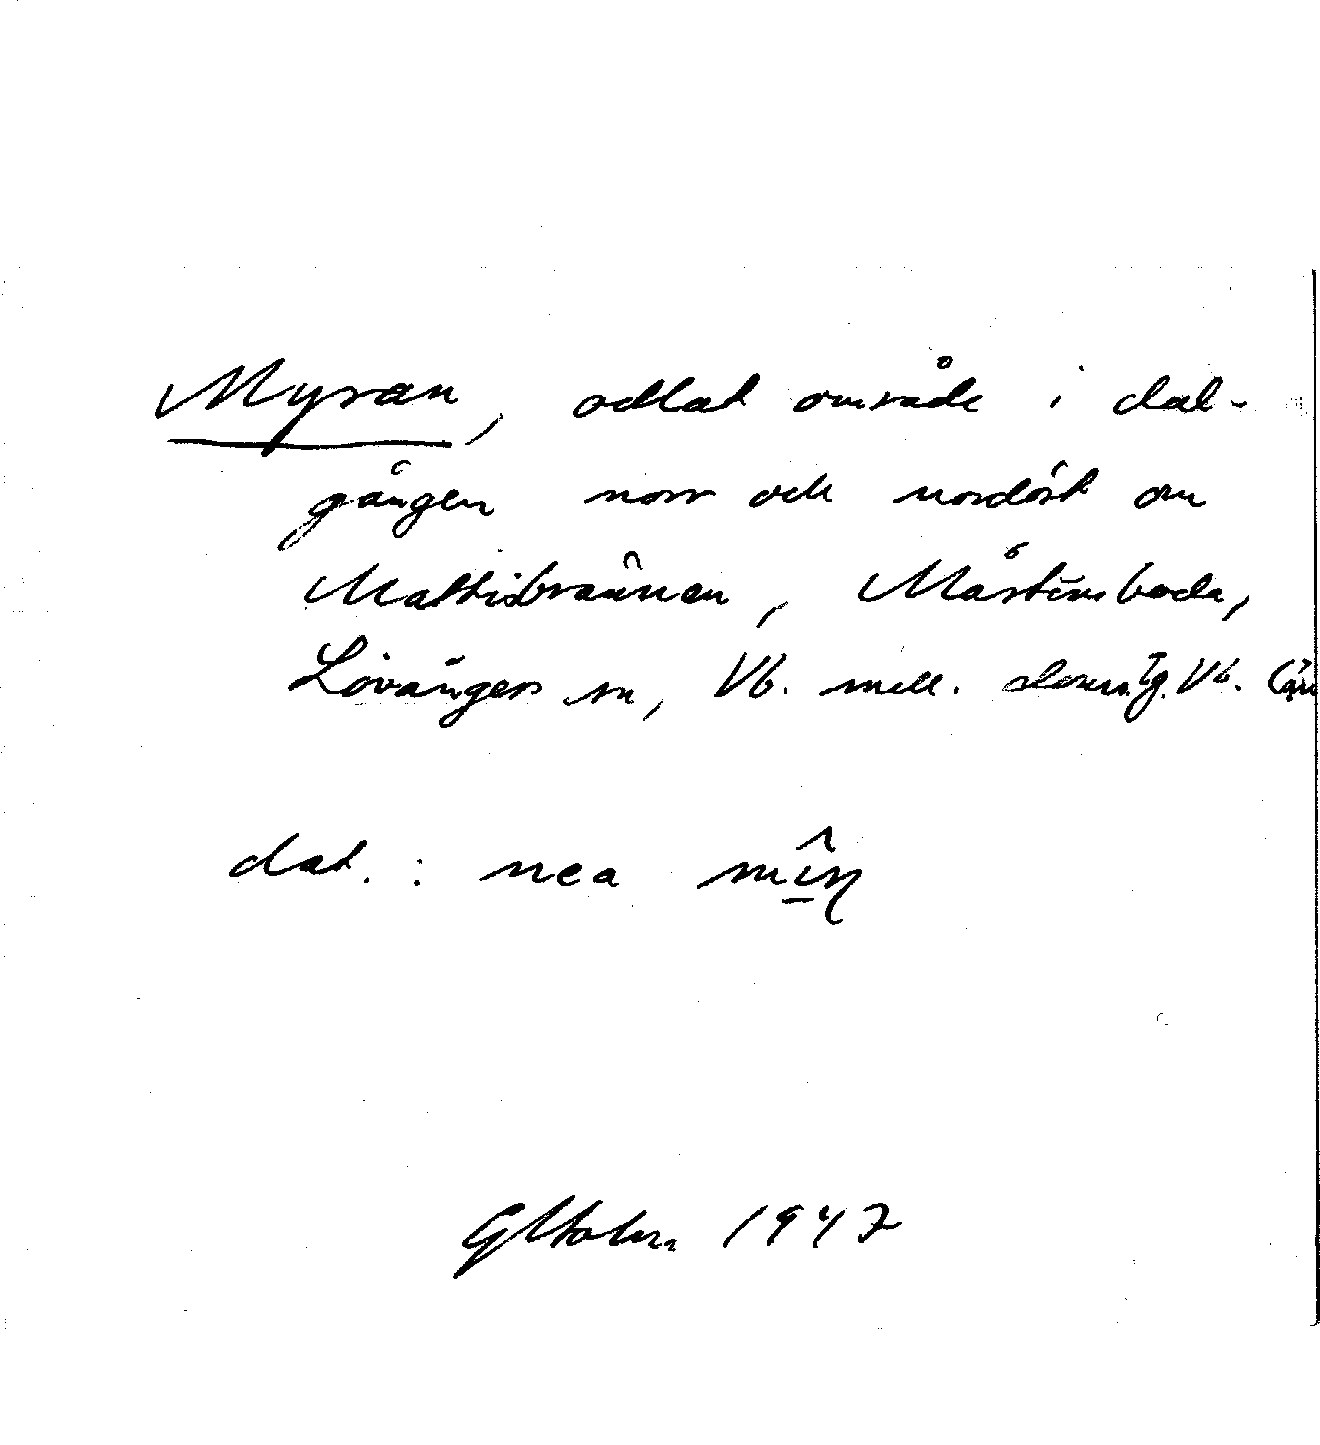 Myran, odlat område i dal-
gången norr och nordöst om
Mattisbrännen, Mårtensboda,
Lövångers sn, Vb. mell. domsg. Vb. län
dat. : nea
GHolm 1947